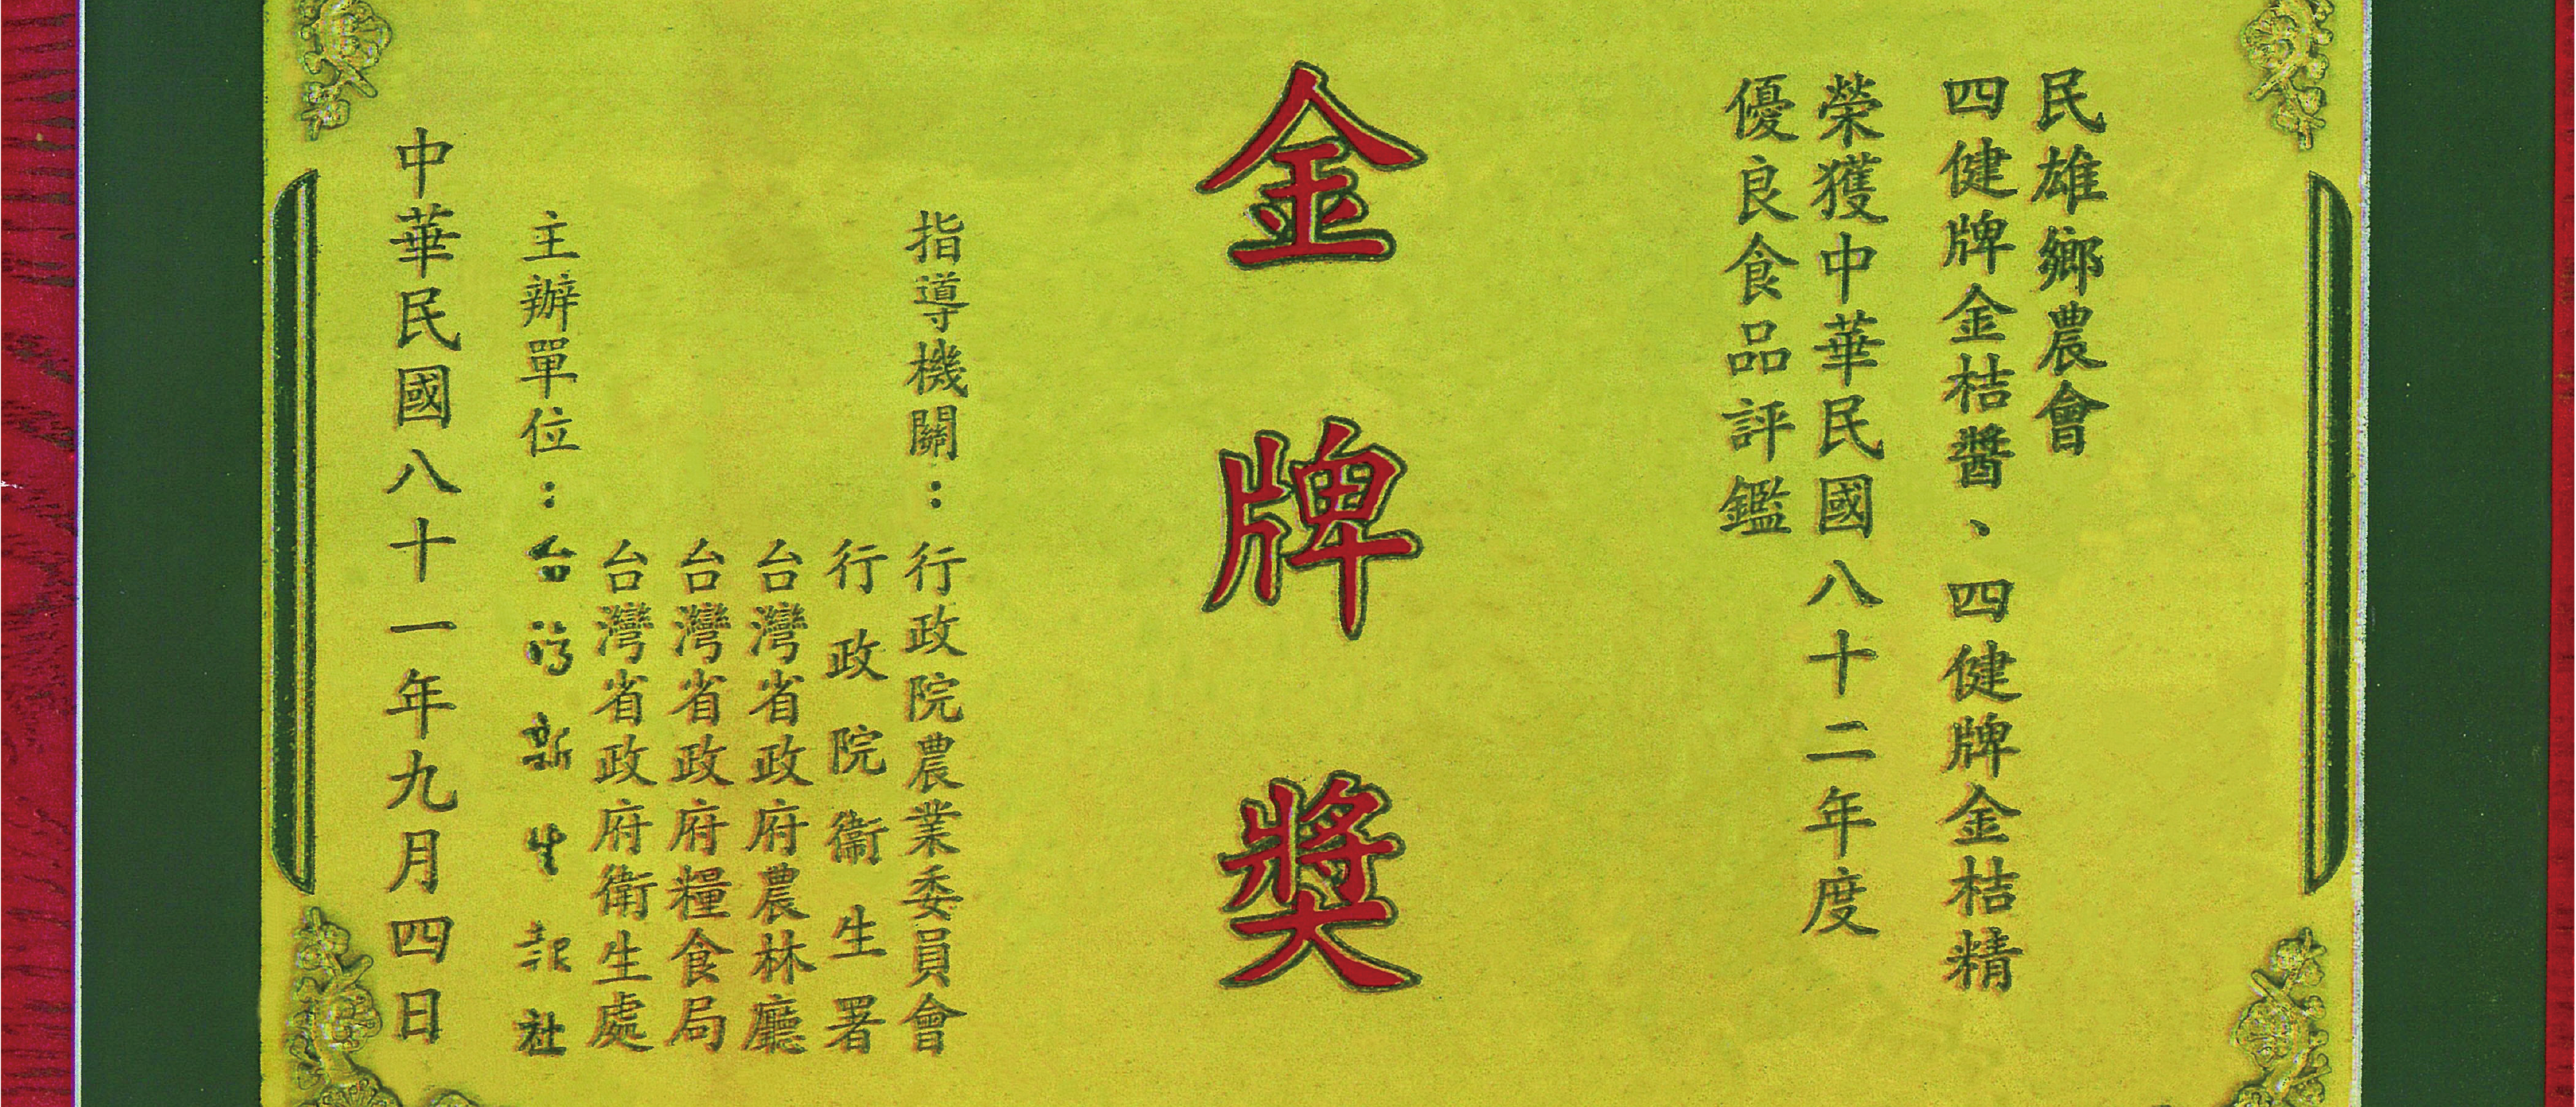 民雄鄉農會
四健牌金桔醬、四健牌金桔精
榮獲中華民國八十二年度
優良食品評鑑
金牌獎
指導機關：行政院農業委員會
行政院衞生署
台灣省政府農林廳
台灣省政府糧食局
台灣省政府衛生處
主辦單位：台灣新生報社
中華民國八十一年九月四日